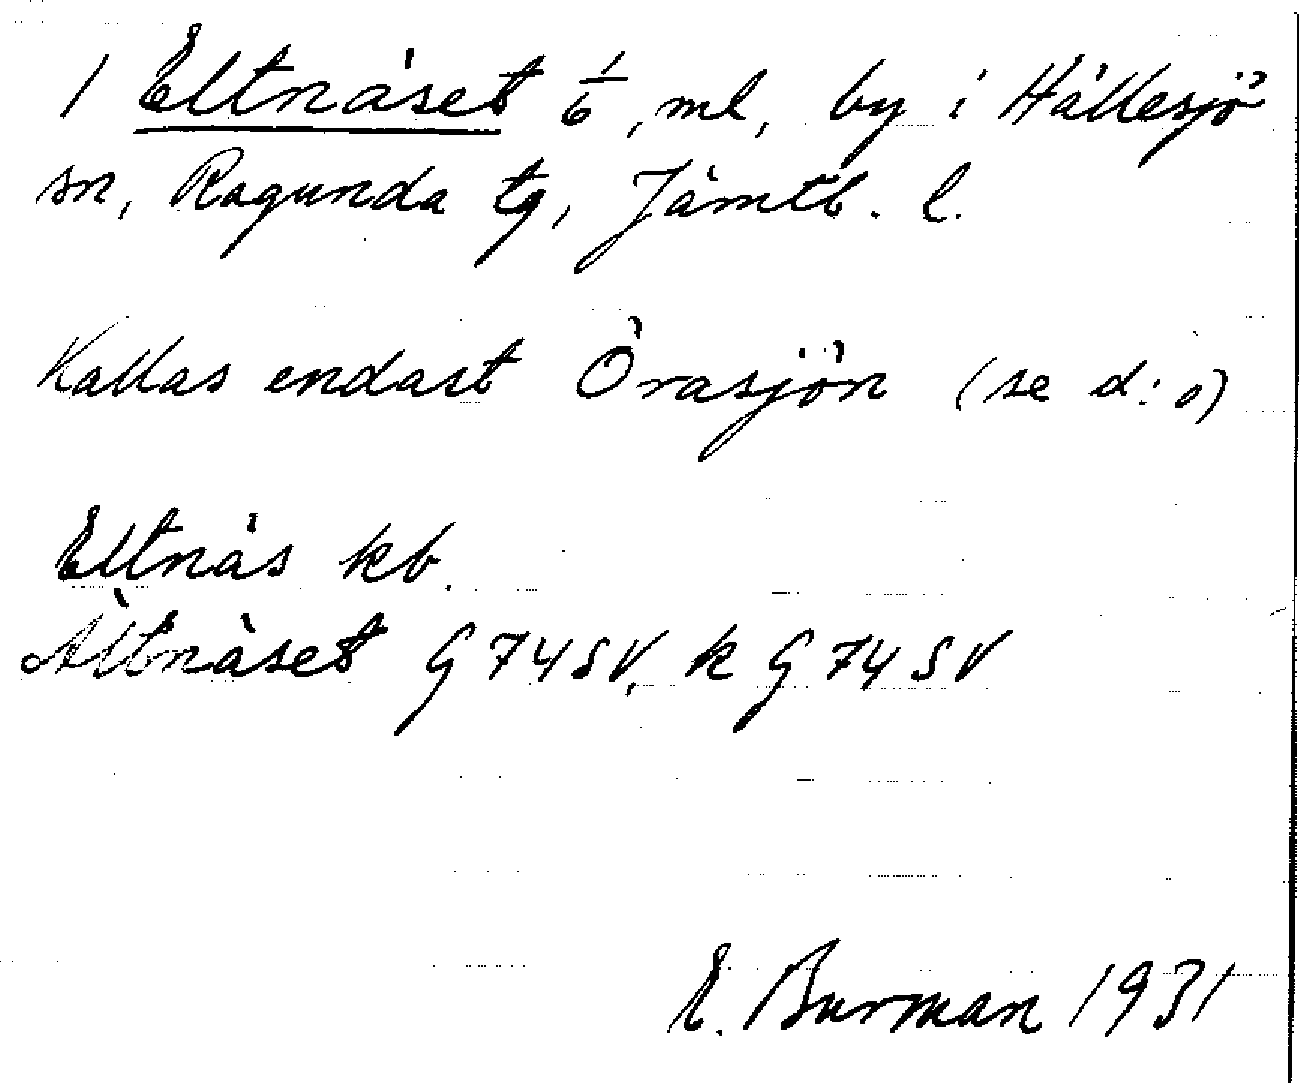 1 Eltnäset 1/6, ml, by i Hällesjö
sn, Ragunda tg, Jämtl. l.
Kallas endast Örasjön (se d:o)
Eltnäs kb.
Ältnäset G 74 SV, k G 74 SV
E. Burman 1931